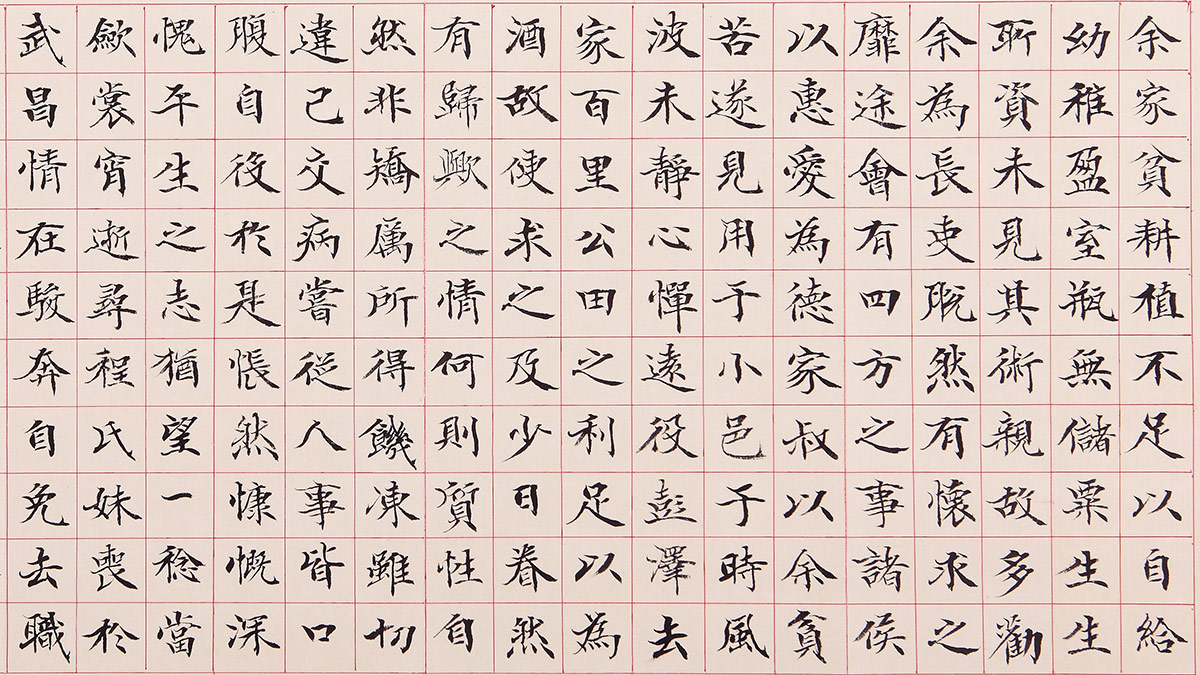 余家貧耕植不足以自給
幼稚盈室瓶無儲粟生生
所資未見其術親故多勸
余為長吏脫然有懷求之
靡途會有四方之事諸侯
以惠愛為德家叔以余貧
苦遂見用于小邑于時風
波未靜心憚遠役彭澤去
家百里公田之利足以為
酒故便求之及少日眷然
有歸歟之情何則質性自
然非矯厲所得饑凍雖切
違己交病嘗從人事皆口
腹自役於是悵然慷慨深
愧平生之志猶望一稔當
歛裳宵逝尋程氏妹喪於
武昌情在駿奔自免去職